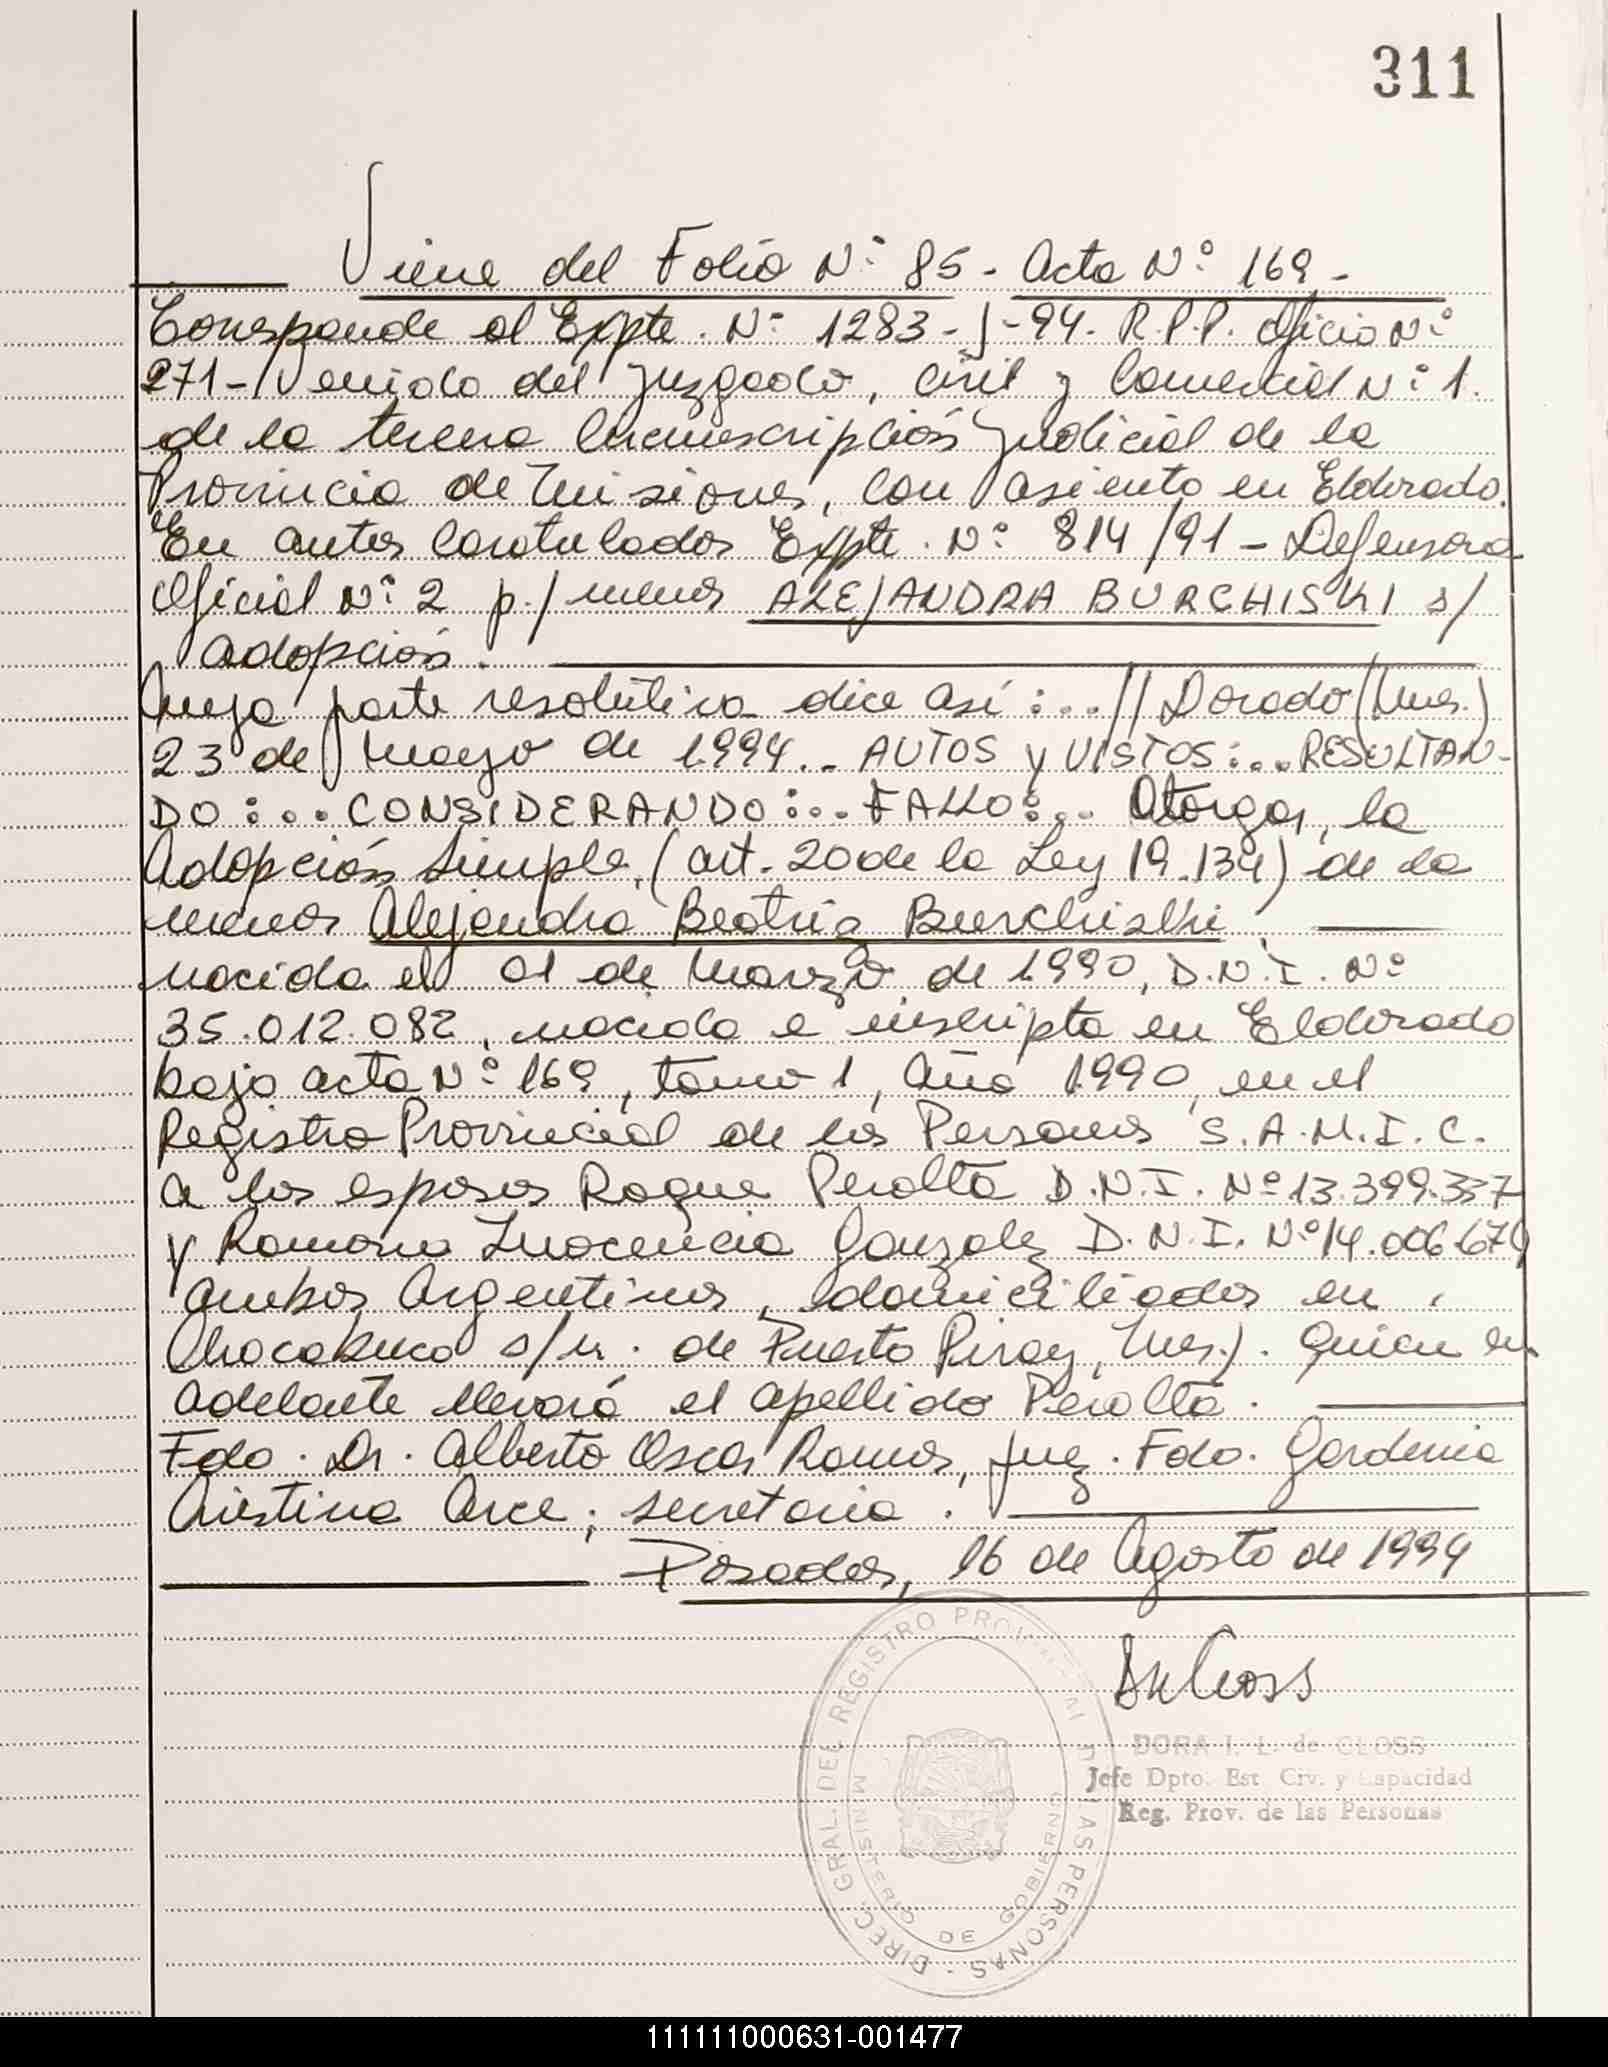 311
Viene del Folio Nº 85 - Acta Nº 169 -
Corresponde al Expte. Nº 1283-J-94. R.P.P. Oficio Nº
271 - Venido del Juzgado, Civil y Comercial Nº 1.
de la tercera Circunscripción Judicial de la
Provincia de Misiones, con asiento en Eldorado.
En autos Caratulados Expte. Nº 814/91 - Defensora
Oficial Nº 2 p./menor ALEJANDRA BURCHISKI s/
adopción.
Cuya parte resolutiva dice así:..//Dorado (Mnes.)
23 de Mayo de 1994.. AUTOS y VISTOS:... RESULTAN-
DO:... CONSIDERANDO:... FALLO:... Otorgar, la
Adopción Simple, (art. 20 de la Ley 19.134) de la
menor Alejandra Beatriz Burchislki,
nacida el 01 de Marzo de 1990, D.N.I. Nº
35.012.082, nacida e inscripta en Eldorado
bajo acta Nº 169, tomo 1, Año 1990, en el
Registro Provincial de las Personas S.A.M.I.C.
a los esposos Roque Peralta D.N.I. Nº 13.399.337
y Ramona Inocencia Gonzalez D.N.I. Nº 14.006.679
ambos Argentinos, domiciliados en
Chacabuco s/n. de Puerto Piray, Mnes.). Quien en
adelante llevará el apellido Peralta.
Fdo. Dr. Alberto Oscar Ramos, Juez. Fdo. Gardenia
Cristina Arce; secretaria.
Posadas, 16 de Agosto de 1994
DORA I. L. de CLOSS
Jefe Dpto. Est. Civ. y Capacidad
Reg. Prov. de las Personas
DIREC. GRAL. DEL REGISTRO PROVINCIAL DE LAS PERSONAS -
MINISTERIO DE GOBIERNO
111111000631-001477